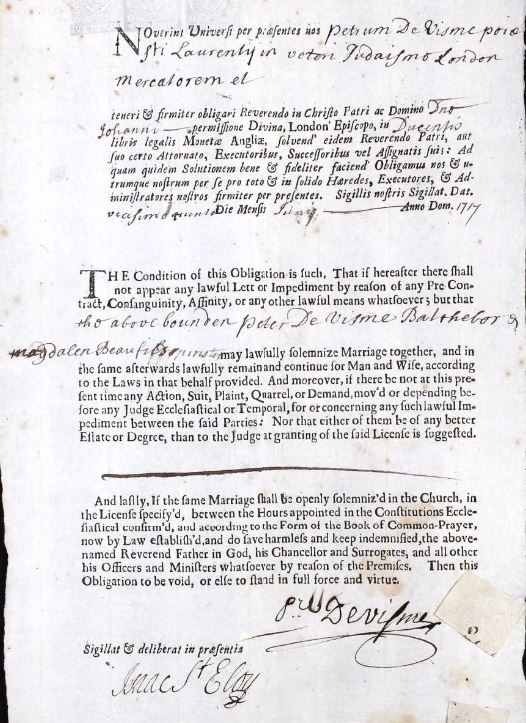 NOverint Universi per præsentes nos Petrum De Visme
Sti Laurentij in veteri Judaismo London
mercatorem et
teneri & firmiter obligari Reverendo in Christo Patri ac Domino Dno
Johanni permissione Divina, London' Episcopo, in Ducentis
libris legalis Monetæ Angliæ, solvend' eidem Reverendo Patri, aut
suo certo Attornato, Executoribus, Successoribus vel Assignatis suis: Ad
quam quidem Solutionem bene & fideliter faciend' Obligamus nos & u-
trumque nostrum per se pro toto & in solido Hæredes, Executores, & Ad-
ministratores nostros firmiter per presentes. Sigillis nostris Sigillat. Dat.
Die Mensis Anno Dom. 1717
THE Condition of this Obligation is such, That if hereafter there shall
not appear any lawful Lett or Impediment by reason of any Pre Con-
tract, Consanguinity, Affinity, or any other lawful means whatsoever; but that
the above bounden Peter De Visme Batchelor &
Magdalen may lawfully solemnize Marriage together, and in
the same afterwards lawfully remain and continue for Man and Wife, according
to the Laws in that behalf provided. And moreover, if there be not at this pre-
sent time any Action, Suit, Plaint, Quarrel, or Demand, mov'd or depending be-
fore any Judge Ecclesiastical or Temporal, for or concerning any such lawful Im-
pediment between the said Parties: Nor that either of them be of any better
Estate or Degree, than to the Judge at granting of the said License is suggested.
And lastly, If the same Marriage shall be openly solemniz'd in the Church, in
the License specify'd, between the Hours appointed in the Constitutions Eccle-
siastical confirm'd, and according to the Form of the Book of Common-Prayer,
now by Law establish'd, and do save harmless and keep indemnified, the above-
named Reverend Father in God, his Chancellor and Surrogates, and all other
his Officers and Ministers whatsoever by reason of the Premises. Then this
Obligation to be void, or else to stand in full force and virtue.
DeVisme
Sigillat & deliberat in præsentia
Isaac St Eloy